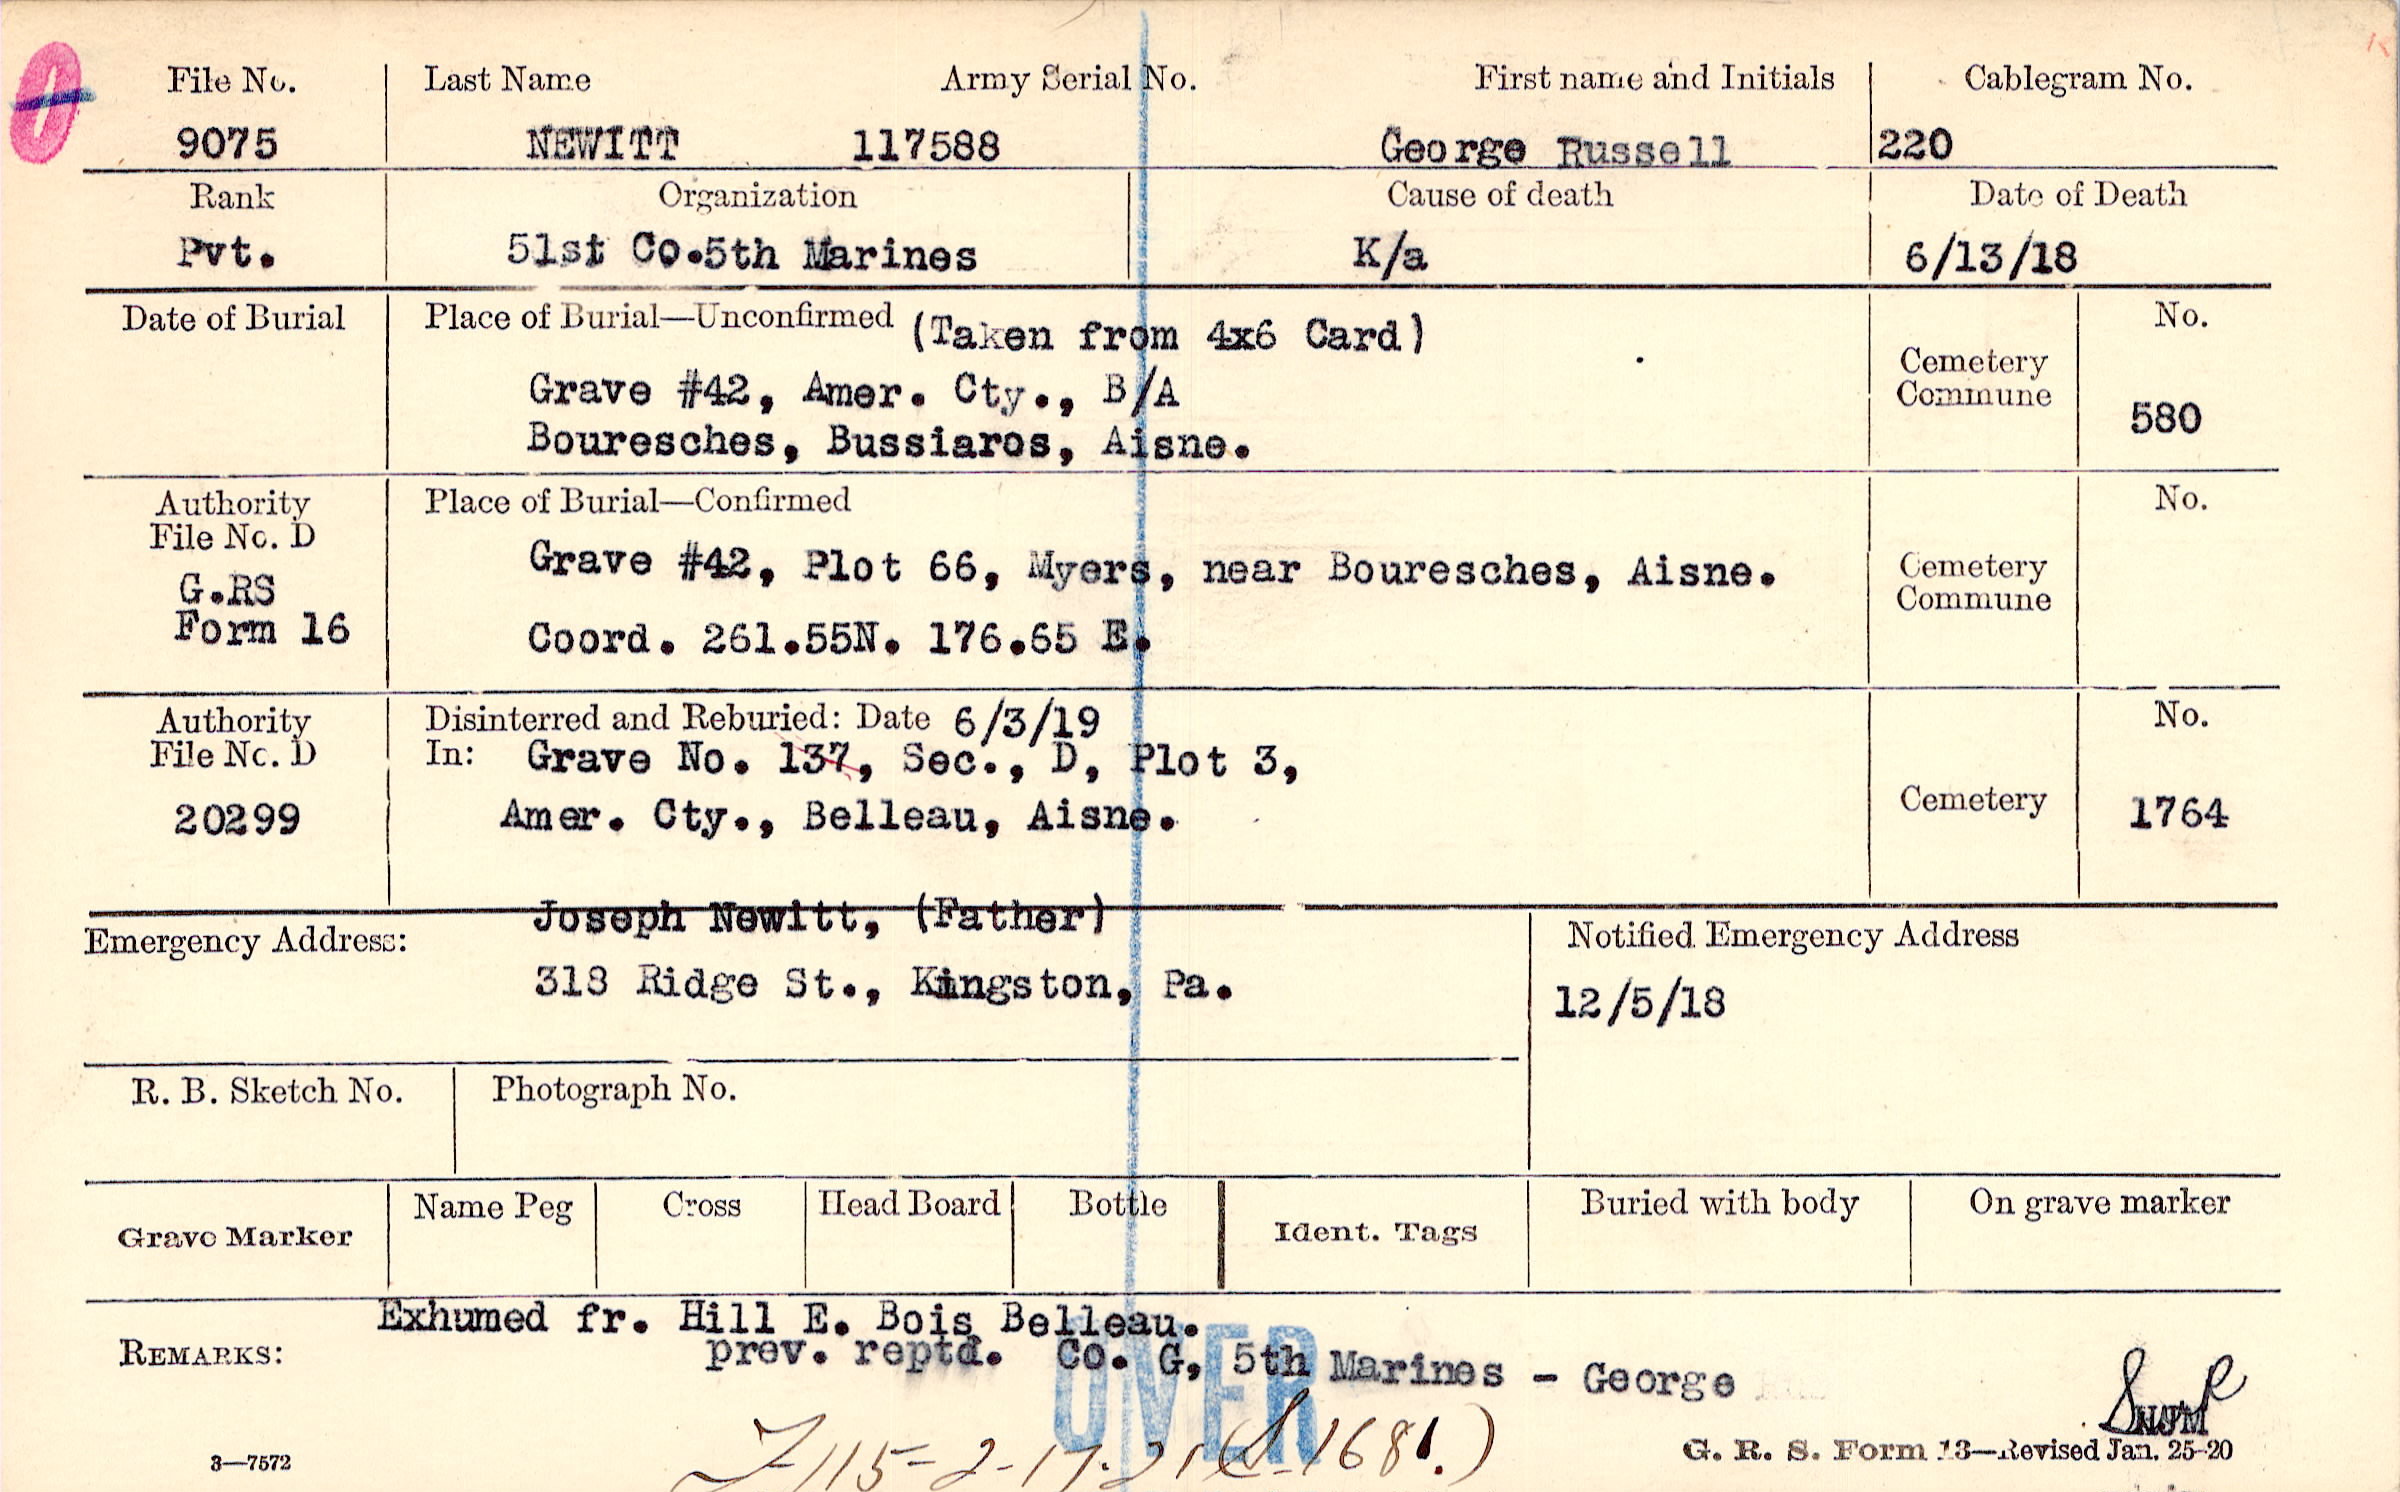 File No. Last Name Army Serial No. First name and Initials Cablegram No.
9075 NEWITT 117588 George Russell 220
Rank Organization Cause of death Date of Death
Pvt. 51st Co.5th Marines K/a 6/13/18
Date of Burial Place of Burial—Unconfirmed (Taken from 4x6 Card) No.
Grave #42, Amer. Cty., B/A Cemetery Commune 580
Bouresches, Bussiaros, Aisne.
Authority File No. D Place of Burial—Confirmed No.
G.RS Form 16 Grave #42, Plot 66, Myers, near Bouresches, Aisne. Cemetery Commune
Coord. 261.55N. 176.65 E.
Authority File No. D Disinterred and Reburied: Date 6/3/19 No.
In: Grave No. 137, Sec., D, Plot 3,
20299 Amer. Cty., Belleau, Aisne. Cemetery 1764
Joseph Newitt, (Father)
Emergency Address: Notified Emergency Address
318 Ridge St., Kingston, Pa. 12/5/18
R. B. Sketch No. Photograph No.
Grave Marker Name Peg Cross Head Board Bottle Ident. Tags Buried with body On grave marker
Exhumed fr. Hill E. Bois Belleau.
REMARKS: prev. reptd. Co. G, 5th Marines - George
OVER
NJM
3—7572 G. R. S. Form 13—Revised Jan. 25-20